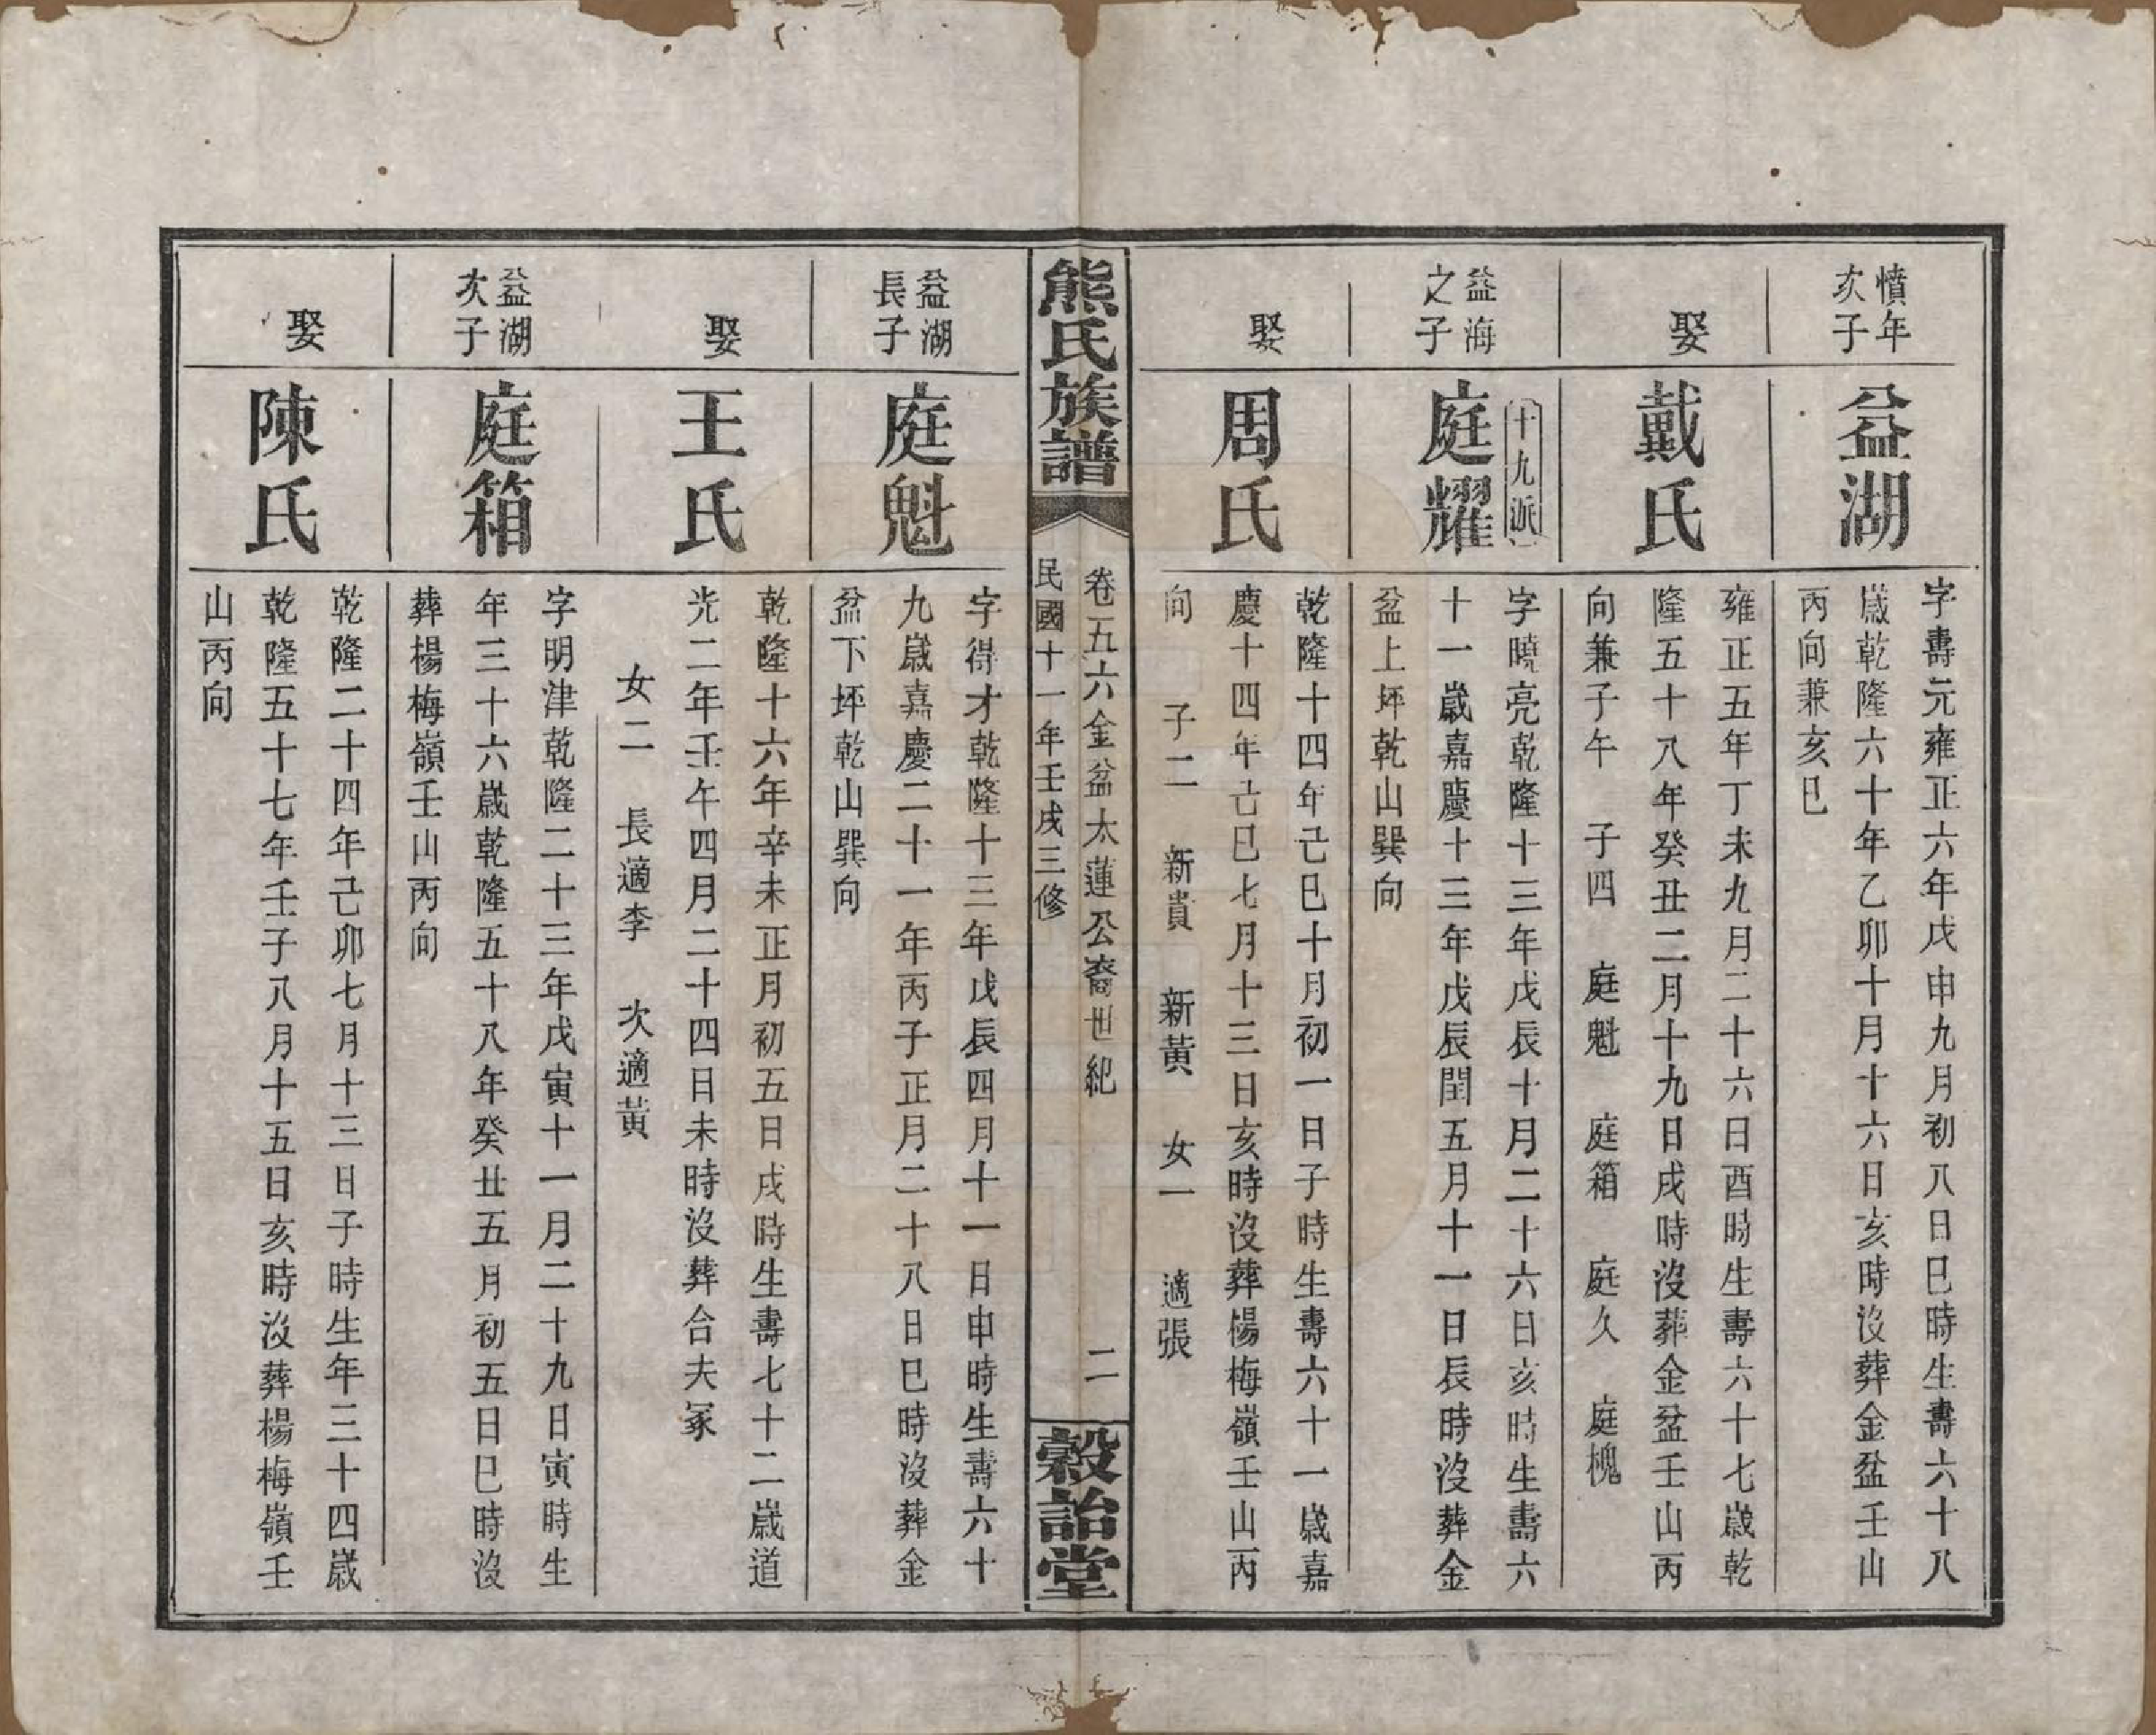 憤年
次子
益湖
字壽元雍正六年戊申九月初八日巳時生壽六十八
歲乾隆六十年乙卯十月十六日亥時沒葬金盆壬山
丙向兼亥巳
娶
戴氏
雍正五年丁未九月二十六日酉時生壽六十七歲乾
隆五十八年癸丑二月十九日戌時沒葬金盆壬山丙
向兼子午 子四 庭魁 庭箱 庭久 庭槐
益海
之子
十九派
庭耀
字曉亮乾隆十三年戊辰十月二十六日亥時生壽六
十一歲嘉慶十三年戊辰閏五月十一日辰時沒葬金
盆上坪乾山巽向
娶
周氏
乾隆十四年己巳十月初一日子時生壽六十一歲嘉
慶十四年己巳七月十三日亥時沒葬楊梅嶺壬山丙
向 子二 新貴 新黃 女一 適張
熊氏族譜
卷五六金盆太蓮公裔世紀 二
民國十一年壬戌三修
穀詒堂
益湖
長子
庭魁
字得才乾隆十三年戊辰四月十一日申時生壽六十
九歲嘉慶二十一年丙子正月二十八日巳時沒葬金
盆下坪乾山巽向
娶
王氏
乾隆十六年辛未正月初五日戌時生壽七十二歲道
光二年壬午四月二十四日未時沒葬合夫冢
女二 長適李 次適黃
益湖
次子
庭箱
字明津乾隆二十三年戊寅十一月二十九日寅時生
年三十六歲乾隆五十八年癸丑五月初五日巳時沒
葬楊梅嶺壬山丙向
娶
陳氏
乾隆二十四年己卯七月十三日子時生年三十四歲
乾隆五十七年壬子八月十五日亥時沒葬楊梅嶺壬
山丙向